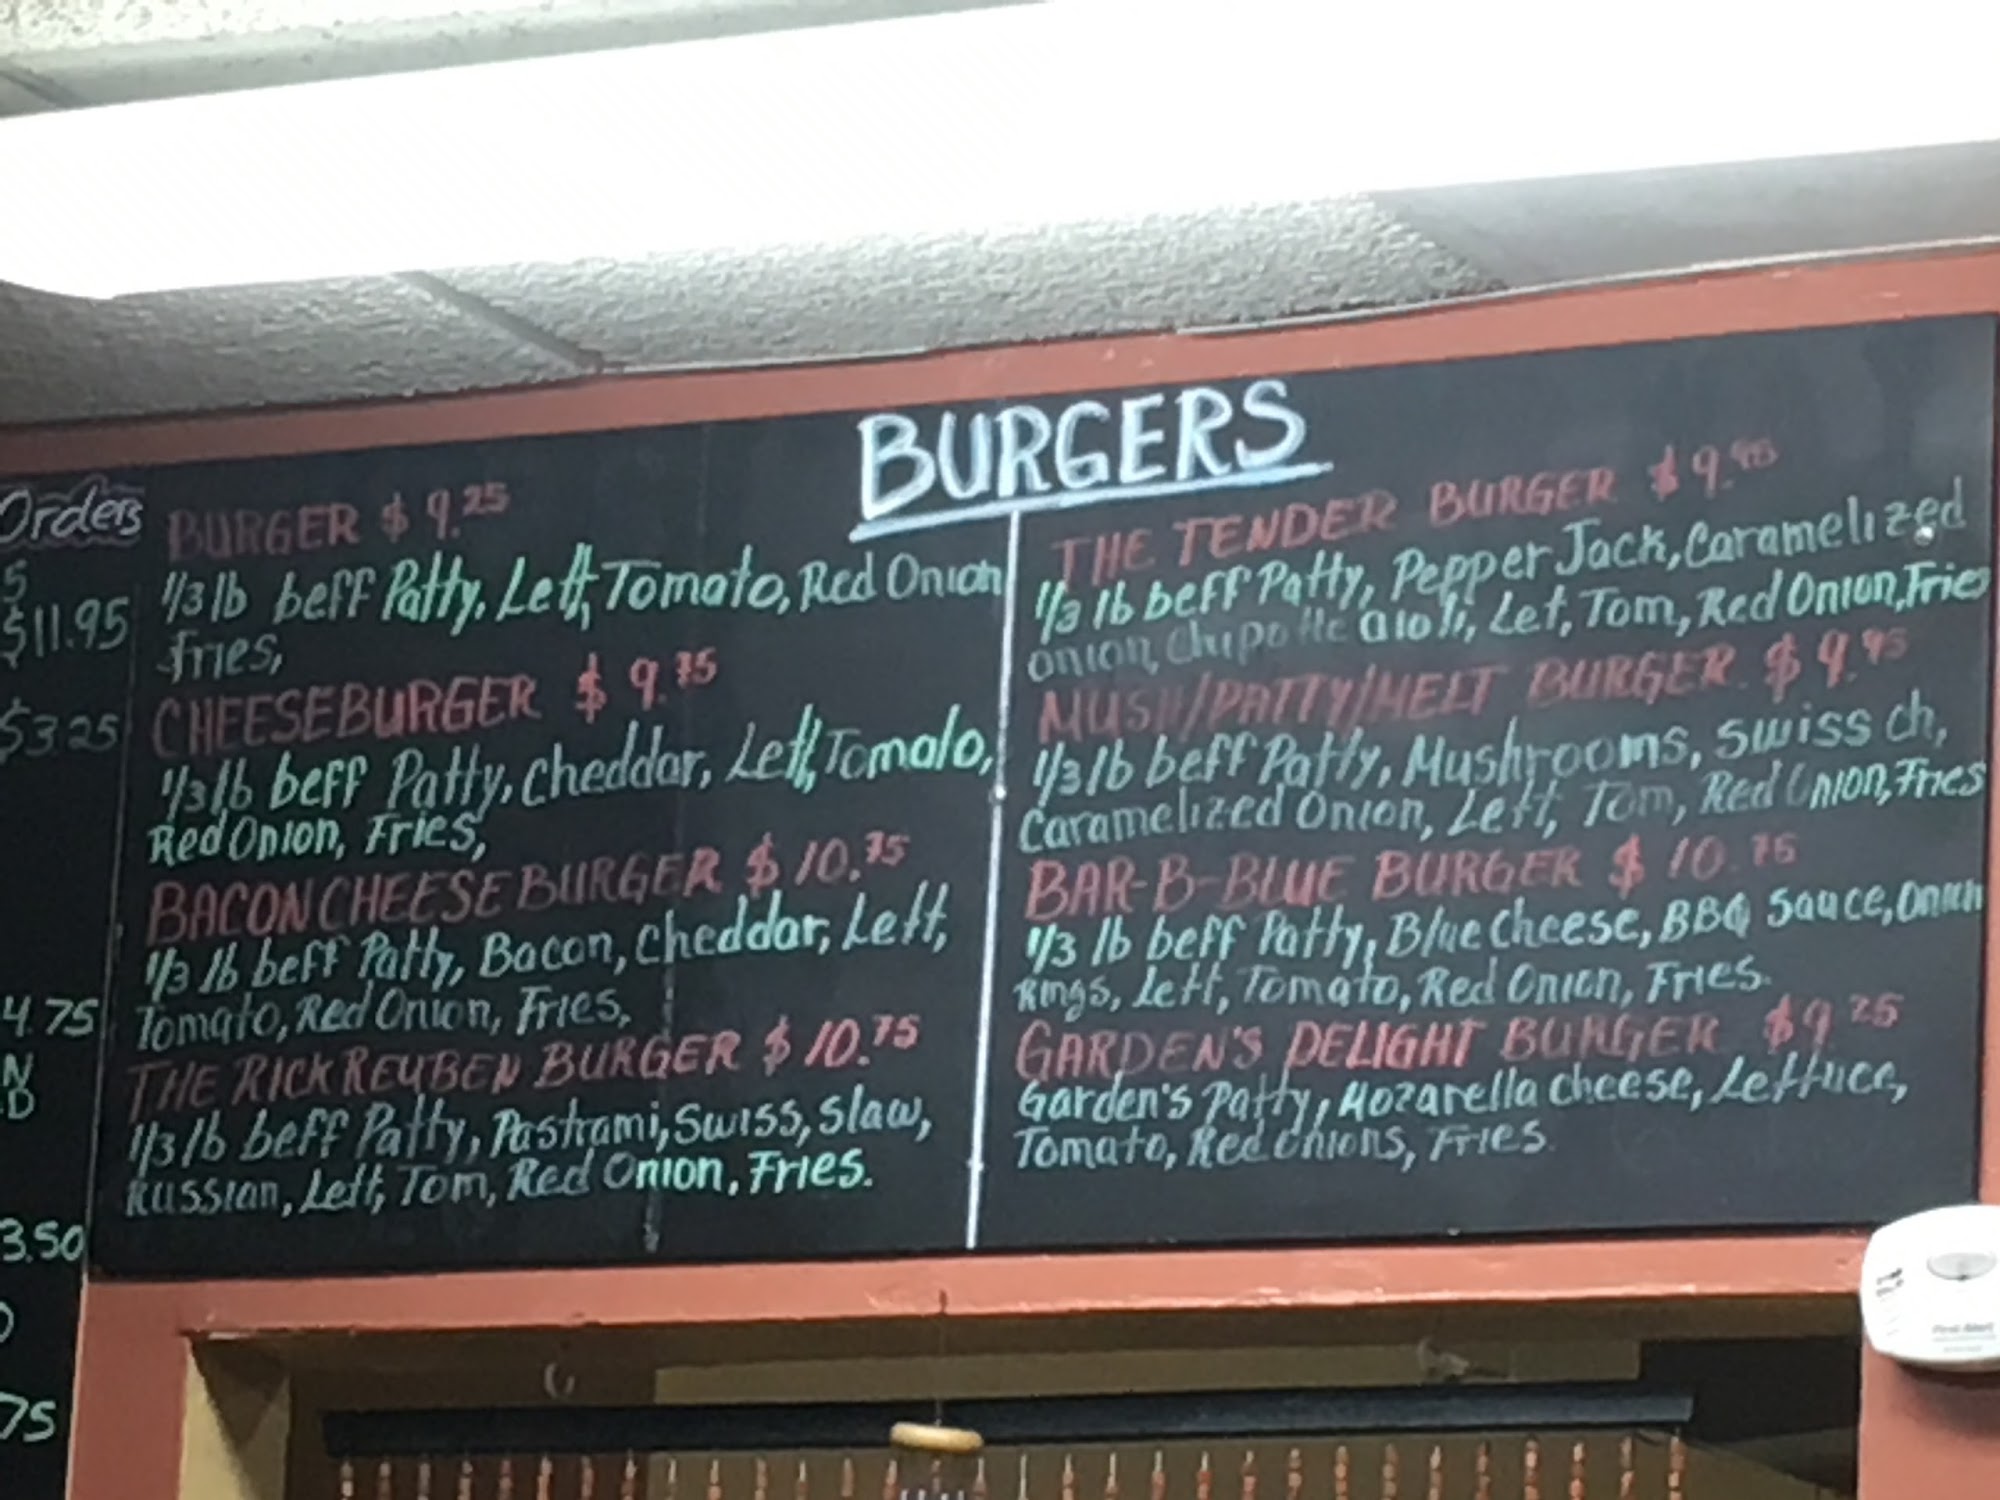 BURGERS
Orders
5
$11.95
$3.25
4.75
N
D
3.50
75
BURGER $9.25
1/3 lb beff Patty, Lett, Tomato, Red Onion
fries,
CHEESEBURGER $9.75
1/3 lb beff Patty, Cheddar, Lett, Tomato,
Red Onion, Fries,
BACON CHEESE BURGER $10.75
1/3 lb beff Patty, Bacon, Cheddar, Lett,
Tomato, Red Onion, Fries,
THE RICK REUBEN BURGER $10.75
1/3 lb beff Patty, Pastrami, Swiss, Slaw,
Russian, Lett, Tom, Red Onion, Fries.
THE TENDER BURGER $9.95
1/3 lb beff Patty, Pepper Jack, Caramelized
onion, Chipotle aioli, Let, Tom, Red Onion, Fries
MUSH/PATTY/MELT BURGER. $9.95
1/3 lb beff Patty, Mushrooms, Swiss ch,
Caramelized Onion, Lett, Tom, Red Onion, Fries
BAR-B-BLUE BURGER $10.75
1/3 lb beff Patty, Blue Cheese, BBQ Sauce, Onion
Rings, Lett, Tomato, Red Onion, Fries.
GARDEN'S DELIGHT BURGER $9.25
Garden's Patty, Mozarella Cheese, Lettuce,
Tomato, Red Onions, Fries.
First Alert